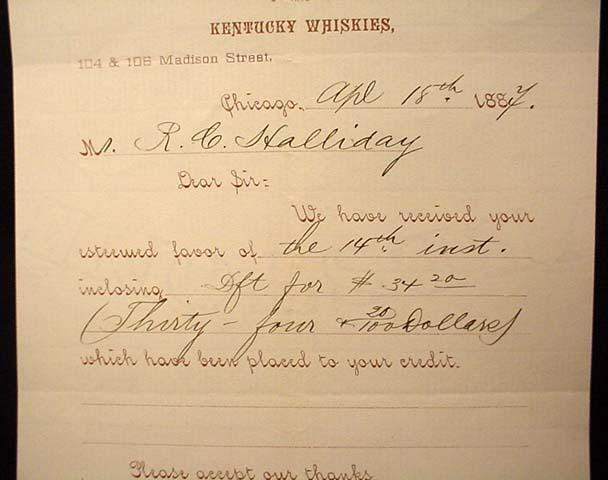 KENTUCKY WHISKIES,
104 & 106 Madison Street.
Chicago, Apl 18th 1887.
Mr. R. C. Halliday
Dear Sir:
We have received your
esteemed favor of the 14th inst.
inclosing Dft for $ 34 20
(Thirty - four & 20/100 Dollars)
which have been placed to your credit.
Please accept our thanks